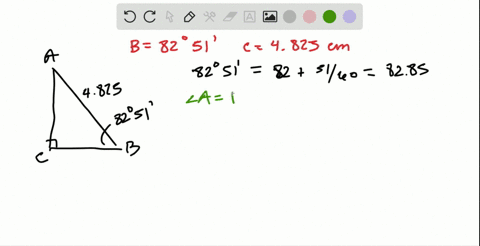 B = 82° 51' c = 4.825 cm
82° 51' = 82 + 51/60 = 82.85
∠A = 1
A
4.825
82° 51'
C
B